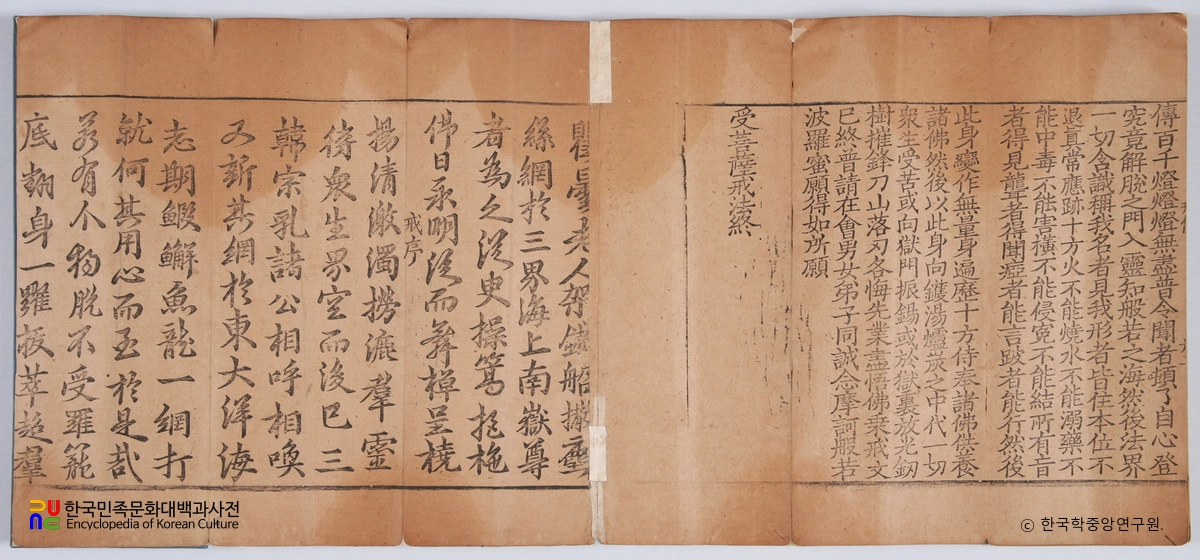 傳百千燈燈燈無盡普令聞者頓了自心登
究竟解脫之門入靈知般若之海然後法界
一切含識稱我名者見我形者皆住本位不
退眞常應跡十方火不能燒水不能溺藥不
能中毒不能害橫不能侵寃不能結所有盲
者得見聾者得聞瘂者能言跛者能行然後
此身變作無量身遍歷十方侍奉諸佛供養
諸佛然後以此身向鑊湯爐炭之中代一切
衆生受苦或向獄門振錫或於獄裏放光釰
樹摧鋒刀山落刃各悔先業盡悟佛乘戒文
已終普請在會男女弟子同誠念摩訶般若
波羅蜜願得如所願
受菩薩戒法終
瞿曇老人架鐵船撒
絲網於三界海上南嶽尊
者爲之從臾操篙把柂
佛日永明從而舞棹呈橈
戒序
揚清激濁撈漉羣靈
待衆生界空而後已三
韓宗乳諸公相呼相喚
又新其網於東大洋海
志期鰕蠏魚龍一網打
就何其用心而至於是哉
若有个物脫不受羅籠
底翻身一躍拔萃超羣
한국민족문화대백과사전
Encyclopedia of Korean Culture
ⓒ 한국학중앙연구원.